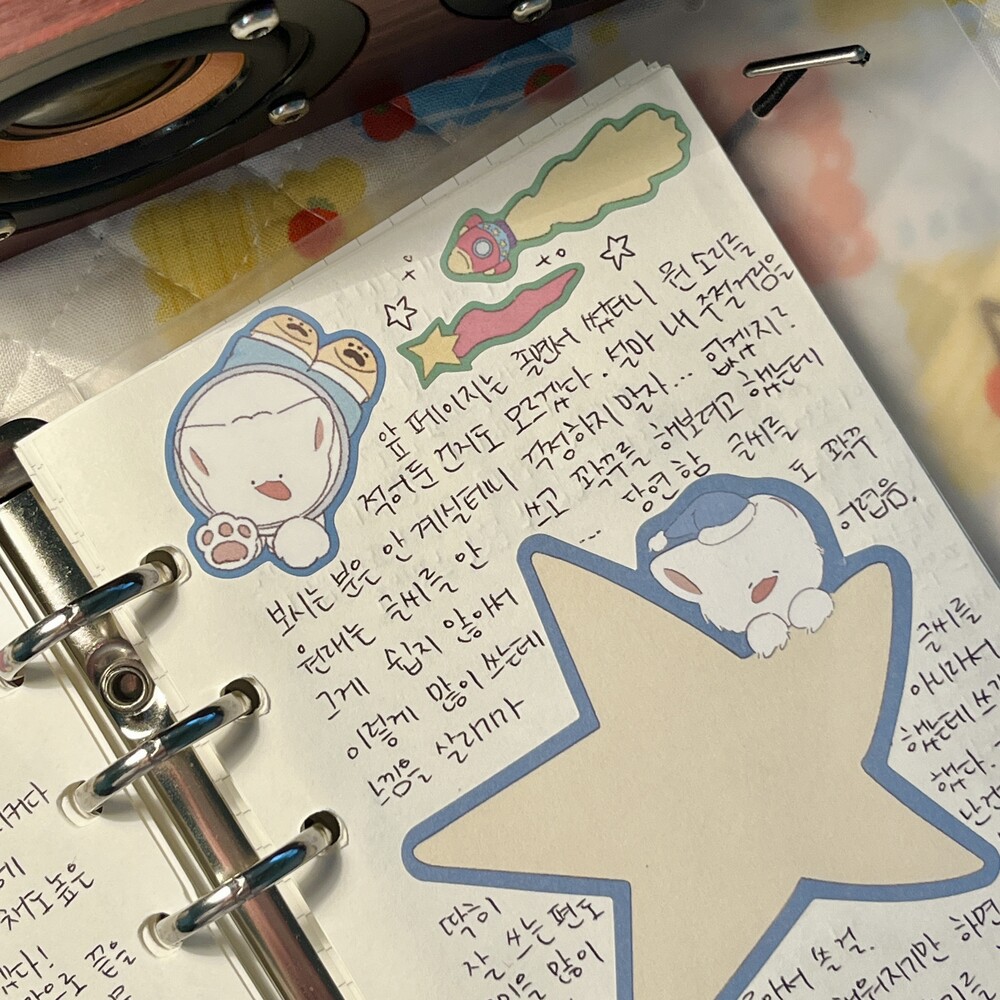 앞 페이지는 졸면서 썼더니 뭔 소리를
적어둔 건지도 모르겠다. 설마 내 주절거림을
보시는 분은 안 계실테니 걱정하지 말자... 없겠지?
원래는 글씨를 안 쓰고 꽉꾸를 해보려고 했는데
그게 쉽지 않아서 ... 당연함 글씨를
이렇게 많이 쓰는데 도 꽉꾸
느낌을 살리기가 어려움.
딱히 글씨를
잘 쓰는 편도 아니라서
많이 했는데
했다.
난건
쓸 걸.
하면
채도 높은
끝을